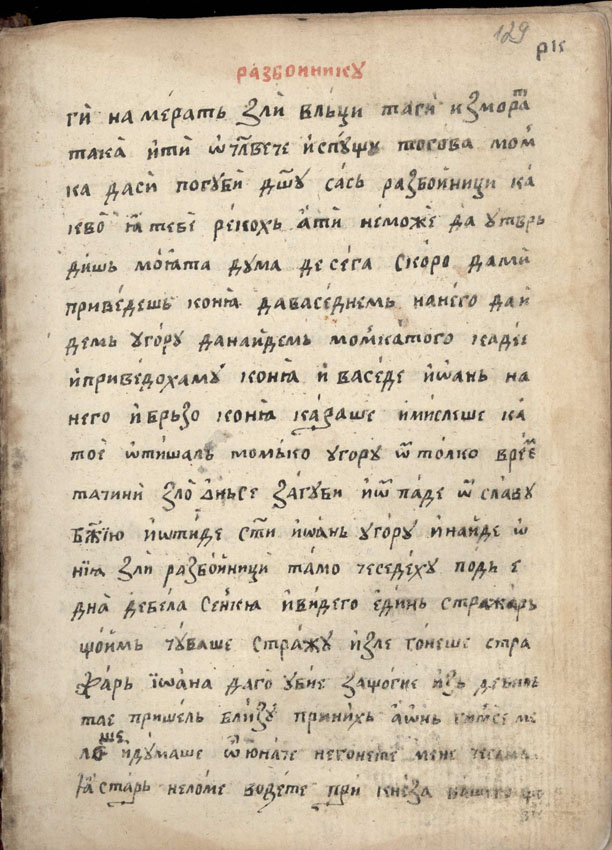 129
рк
разбоиникꙋ
ги на мерать зли вльци таги измора
така и ти ѡ члвече испꙋщꙋ тогова мом
ка даси погꙋби дшꙋ сась разбойници ка
кево ꙗ тебе рекохь а ти не може да ꙋтврь
дишь моꙗта дꙋма де сега скоро да ми
приведешь конꙗ да васеднемь на него да и
демь ꙋгорꙋ да найдемь момкатого каде е
и приведоха мꙋ конꙗ и васеде иѡань на
него и брьзо конꙗ караше и мислеше ка
то е ѡтишаль момько ꙋгорꙋ ѿ толко време
та чини зло днь се загꙋби и ѿ паде ѿ славꙋ
бжїю и ѡтиде сти иѡань ꙋгорꙋ и найде ѡ
нїꙗ зли разбойници тамо че седехꙋ поди е
дна дебела сенкꙗ и виде го единь стражарь
щоимь чꙋваше стражꙋ и изле гонеше стра
жарь їѡана да го ꙋбие защо ги е изь
та е пришель близꙋ при нихь а ѡнь им се ме
леше и дꙋмаше ѿ юначе не гонете мене
ꙗ старь не ломе водете при кнеза вашего